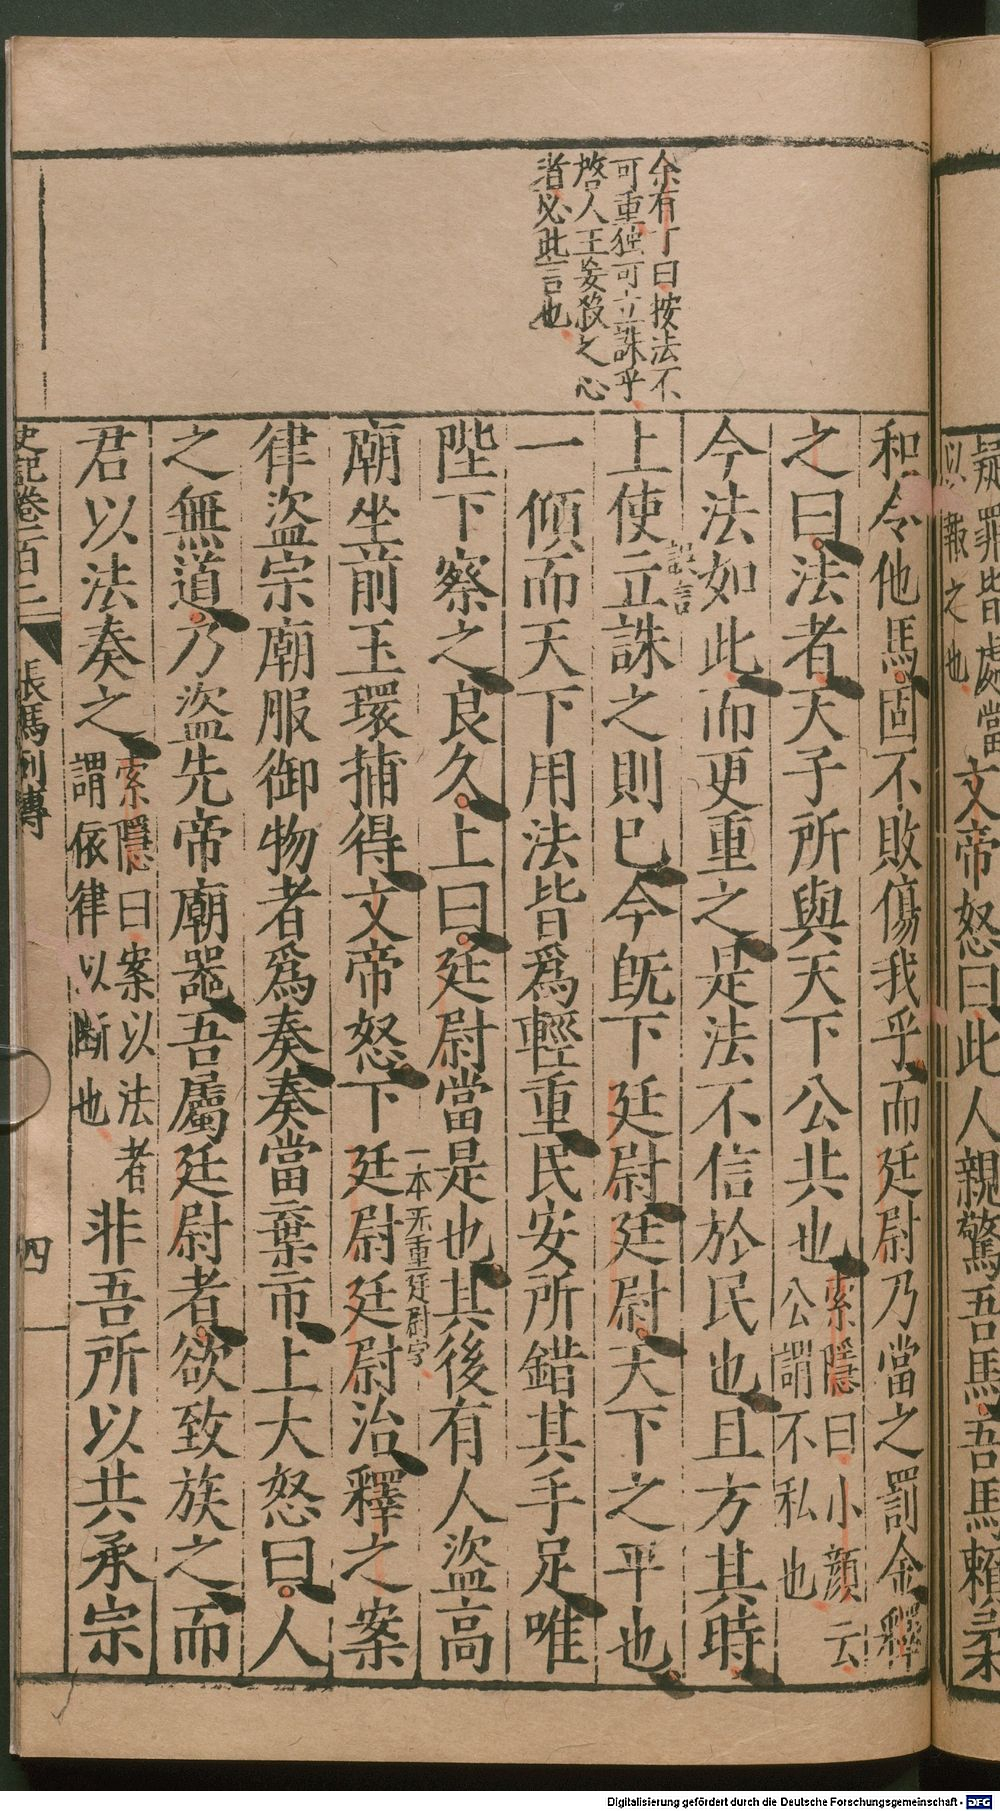 疑罪皆處當
以報之也
文帝怒曰此人親驚吾馬吾馬賴柔
余有丁曰按法不
可重独可立誅乎
啓人主妄殺之心
者必此言也
和令他馬固不敗傷我乎而廷尉乃當之罰金釋
之曰法者天子所與天下公共也
索隱曰小顔云
公謂不私也
今法如此而更重之是法不信於民也且方其時
設言
上使立誅之則已今既下廷尉廷尉天下之平也
一傾而天下用法皆爲輕重民安所錯其手足唯
陛下察之良久上曰廷尉當是也其後有人盜高
一本无重廷尉字
廟坐前玉環捕得文帝怒下廷尉廷尉治釋之案
律盜宗廟服御物者爲奏奏當棄市上大怒曰人
之無道乃盜先帝廟器吾屬廷尉者欲致族之而
君以法奏之
索隱曰案以法者
謂依律以斷也
非吾所以共承宗
史記卷百二
張馮列傳
四
Digitalisierung gefördert durch die Deutsche Forschungsgemeinschaft - DFG